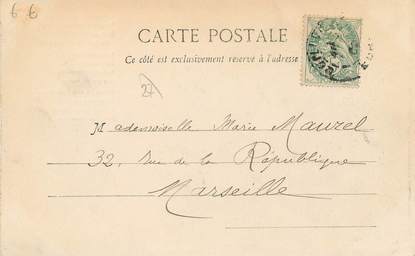 6 6
CARTE POSTALE
Ce côté est exclusivement réservé à l'adresse
27
Mademoiselle Marie Maurel
32, Rue de la République
Marseille